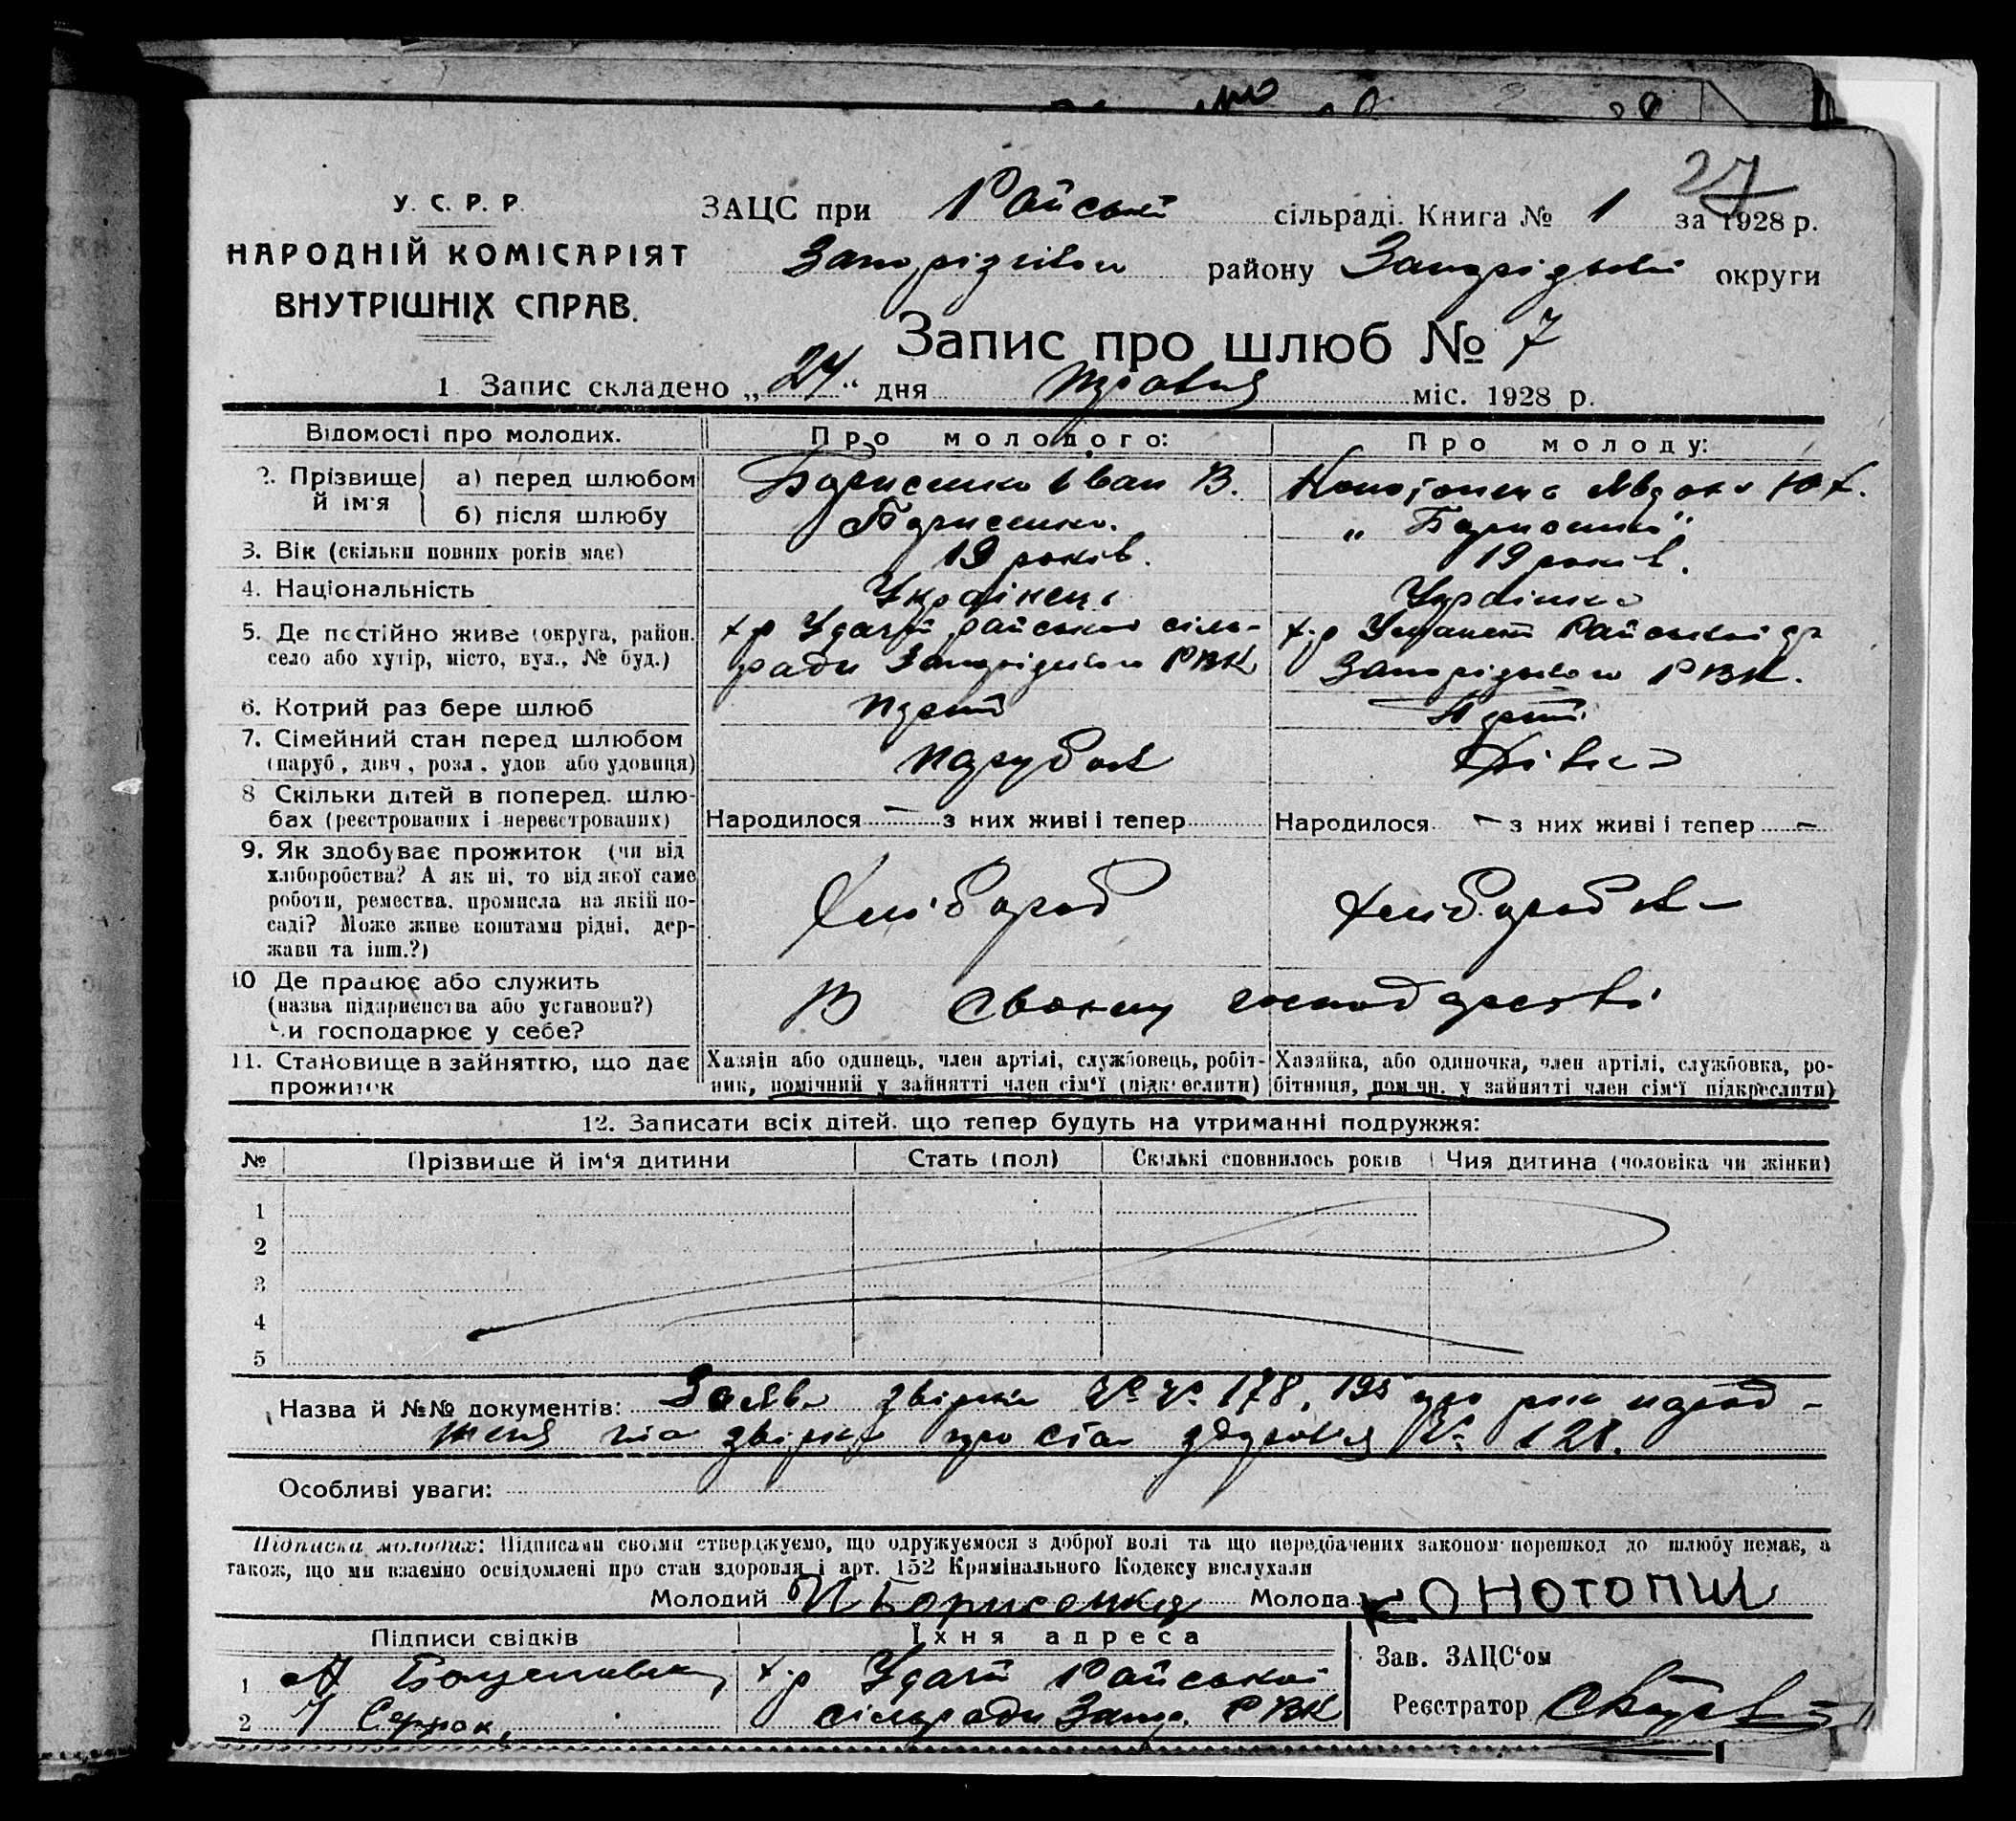 27
У. С. Р. Р.
НАРОДНІЙ КОМІСАРІЯТ
ВНУТРІШНІХ СПРАВ.
ЗАЦС при Райській сільраді. Книга № 1 за 1928 р.
Запорізького району Запорізької округи
Запис про шлюб № 7
1 Запис складено „24“ дня травня міс. 1928 р.
Відомості про молодих. Про молодого: Про молоду:
2. Прізвище й ім'я
а) перед шлюбом Борисенко Іван В. Конотопець Явдоха Юх.
б) після шлюбу Борисенко. „Борисенко“
3. Вік (скільки повних років має) 19 років. 19 років.
4. Національність Українець Українка
5. Де постійно живе (округа, район, село або хутір, місто, вул., № буд.)
х-р Удачн райської сіль-
ради Запорізького РВК
х-р Райської с-р
Запорізького РВК.
6. Котрий раз бере шлюб перший перший
7. Сімейний стан перед шлюбом
(паруб, дівч, розл, удов або удовиця)
парубок Дівка
8 Скільки дітей в поперед. шлю-
бах (реєстрованих і нереєстрованих)
Народилося — з них живі і тепер
Народилося — з них живі і тепер —
9. Як здобуває прожиток (чи від
хліборобства? А як ні, то від якої саме
роботи, ремества, промисла на якій по-
саді? Може живе коштами рідні, дер-
жави та інш.?)
Хлібороб Хліборобка
10 Де працює або служить
(назва підприємства або установи?)
Чи господарює у себе?
В своєму господарстві
11. Становище в зайняттю, що дає
прожиток
Хазяін або одинець, член артілі, службовець, робіт-
ник, помічний у зайнятті член сім'ї (підкреслити)
Хазяйка, або одиночка, член артілі, службовка, ро-
бітниця, помічн. у зайнятті член сім'ї підкреслити)
12. Записати всіх дітей, що тепер будуть на утриманні подружжя:
№ Прізвище й ім'я дитини Стать (пол) Скількі сповнилось років Чия дитина (чоловіка чи жінки)
1
2
3
4
5
Назва й №№ документів: Заява звірки №№ 178, 195 про рік народ-
ження та звірка про стан здоровья № 128.
Особливі уваги:
Підписка молодих: Підписами своїми стверджуємо, що одружуємося з доброї волі та що передбачених законом перешкод до шлюбу немає, а
також, що ми взаємно освідомлені про стан здоровля і арт. 152 Кримінального Кодексу вислухали
Молодий И Борисенко Молода КОНОТОПИЦ
Підписи свідків Їхня адреса
1 А х-р Удачн Райської
2 Сердюк, сільради Запор. РВК
Зав. ЗАЦС'ом
Реєстратор